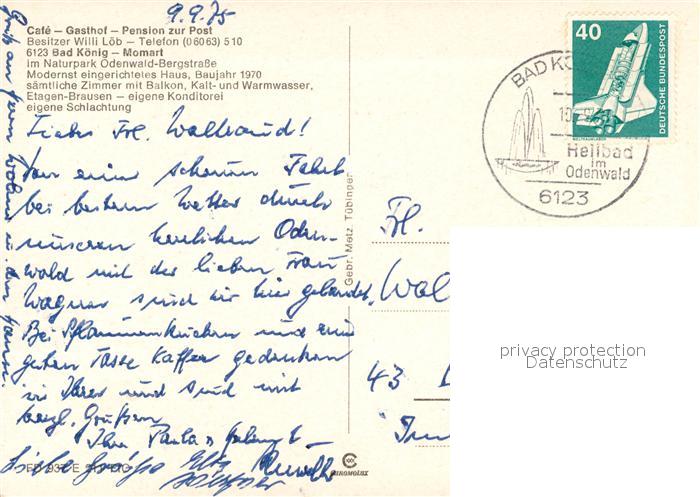 9.9.75
Café – Gasthof – Pension zur Post
Besitzer Willi Löb – Telefon (06063) 510
6123 Bad König – Momart
im Naturpark Odenwald-Bergstraße
Modernst eingerichtetes Haus, Baujahr 1970
sämtliche Zimmer mit Balkon, Kalt- und Warmwasser,
Etagen-Brausen – eigene Konditorei
eigene Schlachtung
Liebes Frl. Waltraud!
Von einer schönen Fahrt
bei bestem Wetter durch
unseren herrlichen Oden-
wald mit der lieben Frau
Wagner sind wir hier gelandet.
Bei Pflaumenkuchen und einer
guten Tasse Kaffee gedenken
wir Ihrer und sind mit
herzl. Grüßen
Ihre Paula
Liebe Grüße
Gebr. Metz, Tübingen
CHROMOLUX
40
DEUTSCHE BUNDESPOST
WELTRAUMLABOR
BAD KÖ
Heilbad
im
Odenwald
6123
Frl.
Wal
43
privacy protection
Datenschutz